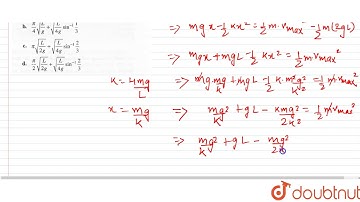 b. π/4 √(L/g) + √(L/4g) sin⁻¹ 1/3
c. π √(L/2g) + √(L/4g) sin⁻¹ 2/3
d. π/2 √(L/2g) + √(L/4g) sin⁻¹ 2/3
K = 4mg/L
x = mg/K
⇒ mgx - 1/2 kx² = 1/2 m·Vmax² - 1/2 m(2gL)
⇒ mgx + mgL - 1/2 kx² = 1/2 m·Vmax²
⇒ mg·mg/K + mgL - 1/2 ·K·m²g²/K² = 1/2 mVmax²
⇒ mg²/K + gL - Kmg²/2K² = 1/2 mVmax²
⇒ mg²/K + gL - mg²/2K
doubtnut